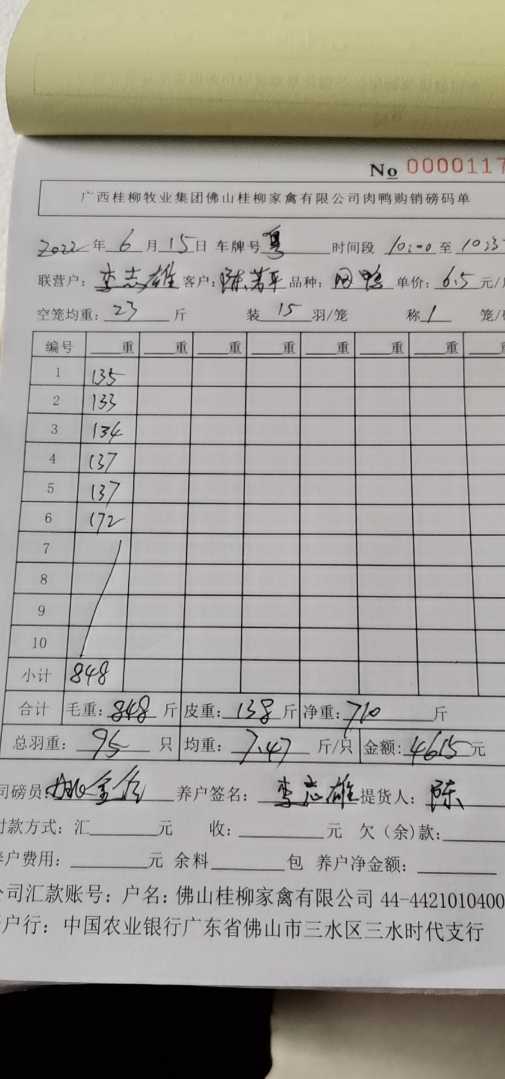 No 0000117
广西桂柳牧业集团佛山桂柳家禽有限公司肉鸭购销磅码单
2022年6月15日 车牌号粤 时间段 10:00至10:35
联营户：李志雄 客户：陈芳平 品种： 单价：6.5元/
空笼均重：23斤 装15羽/笼 称1笼/
编号 重 重 重 重 重 重 重
1 135
2 133
3 134
4 137
5 137
6 172
7
8
9
10
小计 848
合计 毛重：848斤 皮重：138斤 净重：710斤
总羽重：95只 均重：7.47斤/只 金额：4615元
司磅员： 养户签名：李志雄 提货人：陈
付款方式：汇 元 收： 元 欠（余）款：
养户费用： 元 余料 包 养户净金额：
公司汇款账号：户名：佛山桂柳家禽有限公司 44-4421010400
户行：中国农业银行广东省佛山市三水区三水时代支行